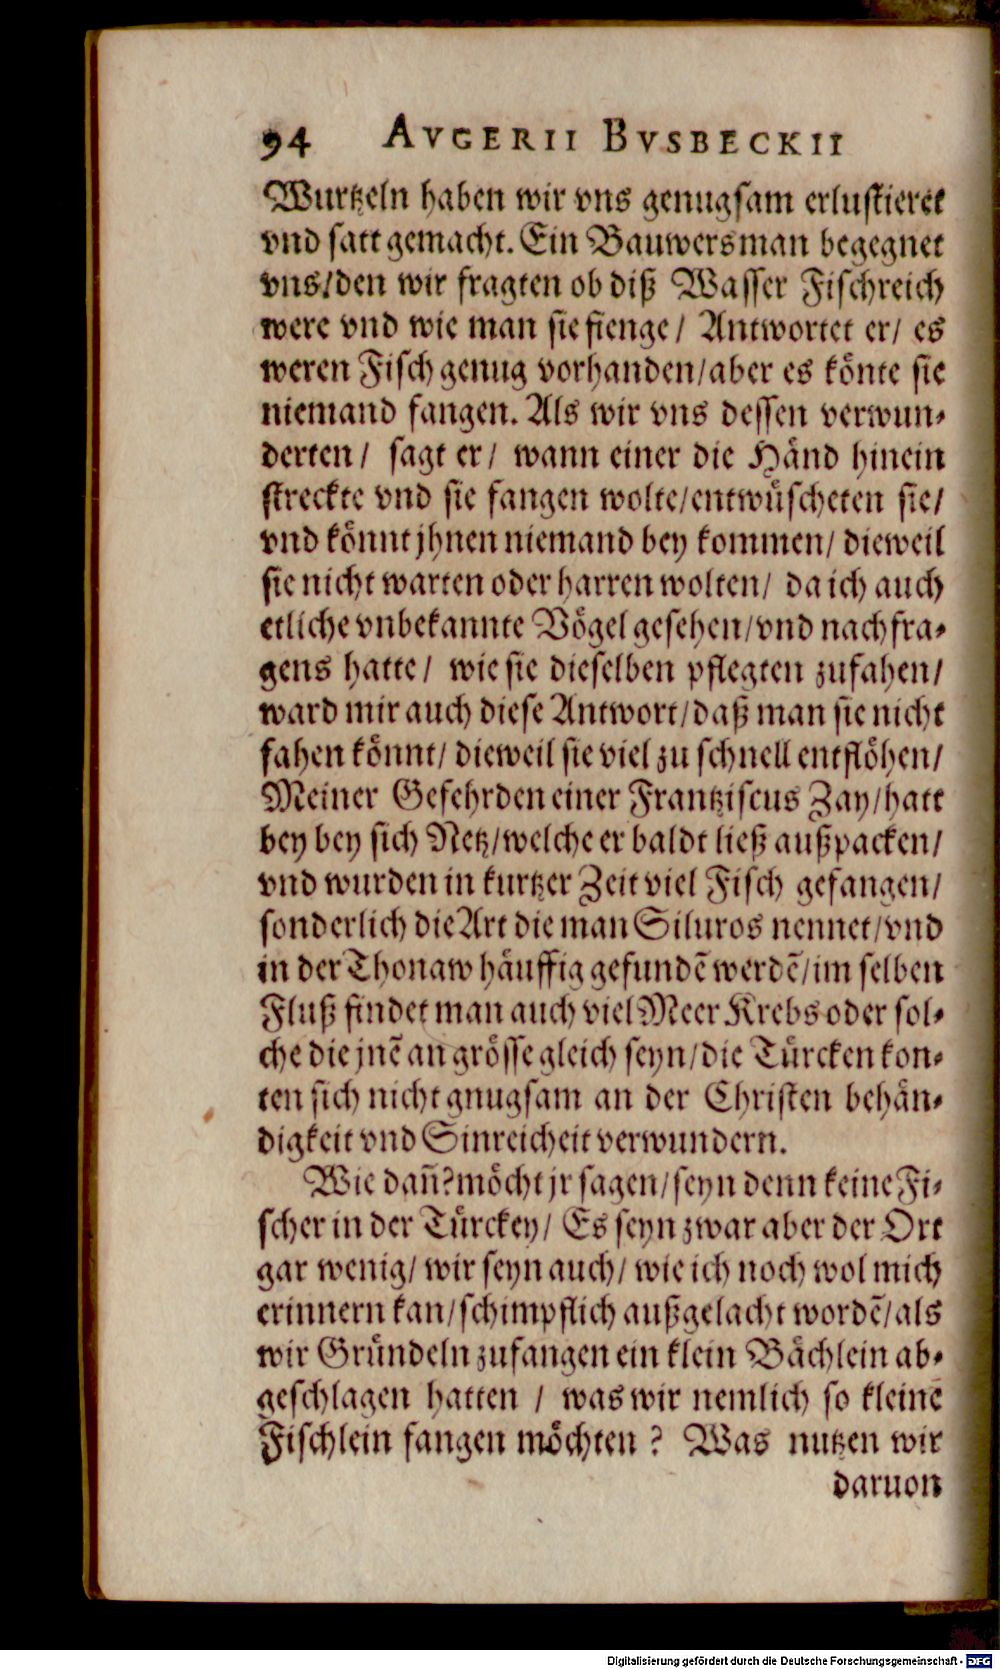 94 AVGERII BVSBECKII
Wurtzeln haben wir vns genugsam erlustieret
vnd satt gemacht. Ein Bauwersman begegnet
vns/den wir fragten ob diß Wasser Fischreich
were vnd wie man sie fienge / Antwortet er/ es
weren Fisch genug vorhanden/aber es könte sie
niemand fangen. Als wir vns dessen verwun-
derten / sagt er / wann einer die Händ hinein
streckte vnd sie fangen wolte/entwüscheten sie/
vnd könnt jhnen niemand bey kommen/ dieweil
sie nicht warten oder harren wolten/ da ich auch
etliche vnbekannte Vögel gesehen/vnd nachfra-
gens hatte / wie sie dieselben pflegten zufahen/
ward mir auch diese Antwort/daß man sie nicht
fahen könnt/ dieweil sie viel zu schnell entflöhen/
Meiner Gefehrden einer Frantziscus Zay/hatt
bey bey sich Netz/welche er baldt ließ außpacken/
vnd wurden in kurtzer Zeit viel Fisch gefangen/
sonderlich die Art die man Siluros nennet/vnd
in der Thonaw häuffig gefundē werdē/im selben
Fluß findet man auch viel Meer Krebs oder sol-
che die jnē an grösse gleich seyn/die Türcken kon-
ten sich nicht gnugsam an der Christen behän-
digkeit vnd Sinreicheit verwundern.
Wie dañ?möcht jr sagen/seyn denn keine Fi-
scher in der Türckey/ Es seyn zwar aber der Ort
gar wenig/ wir seyn auch/ wie ich noch wol mich
erinnern kan/schimpflich außgelacht wordē/als
wir Gründeln zufangen ein klein Bächlein ab-
geschlagen hatten / was wir nemlich so kleinē
Fischlein fangen möchten ? Was nutzen wir
daruon
Digitalisierung gefördert durch die Deutsche Forschungsgemeinschaft - DFG